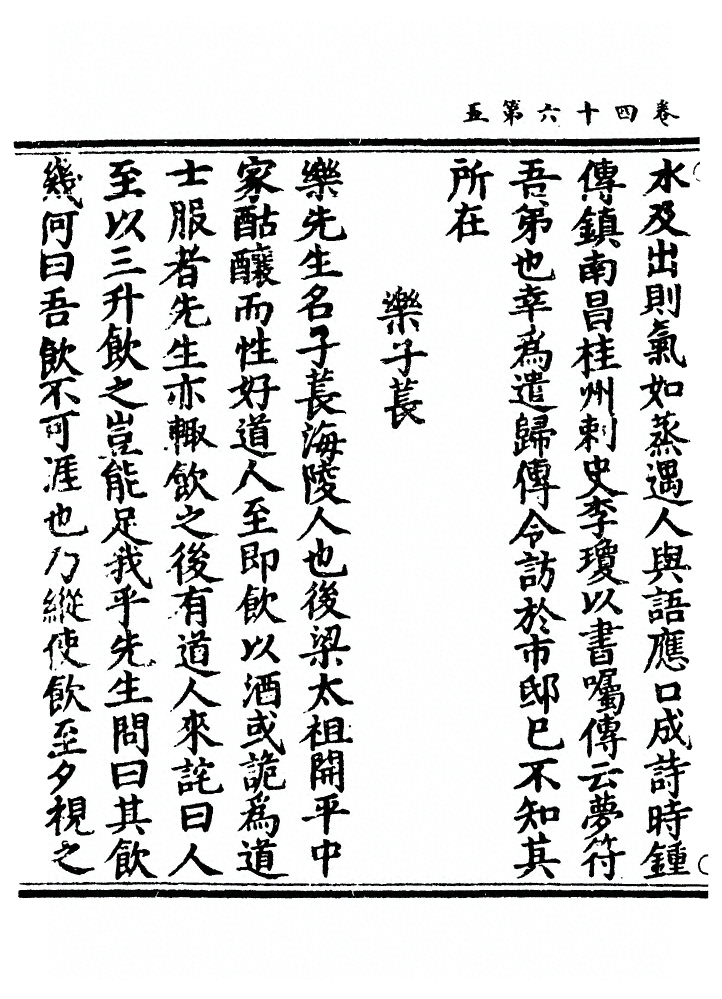 卷四十六第五
水及出則氣如蒸遇人與語應口成詩時鍾
傳鎮南昌桂州刺史李瓊以書囑傳云夢符
吾弟也幸為遣歸傳令訪於市邸已不知其
所在
樂子萇
樂先生名子萇海陵人也後梁太祖開平中
家酤釀而性好道人至即飲以酒或詭為道
士服者先生亦輙飲之後有道人來詫曰人
至以三升飲之豈能足我乎先生問曰其飲
幾何曰吾飲不可涯也乃縱使飲至夕視之